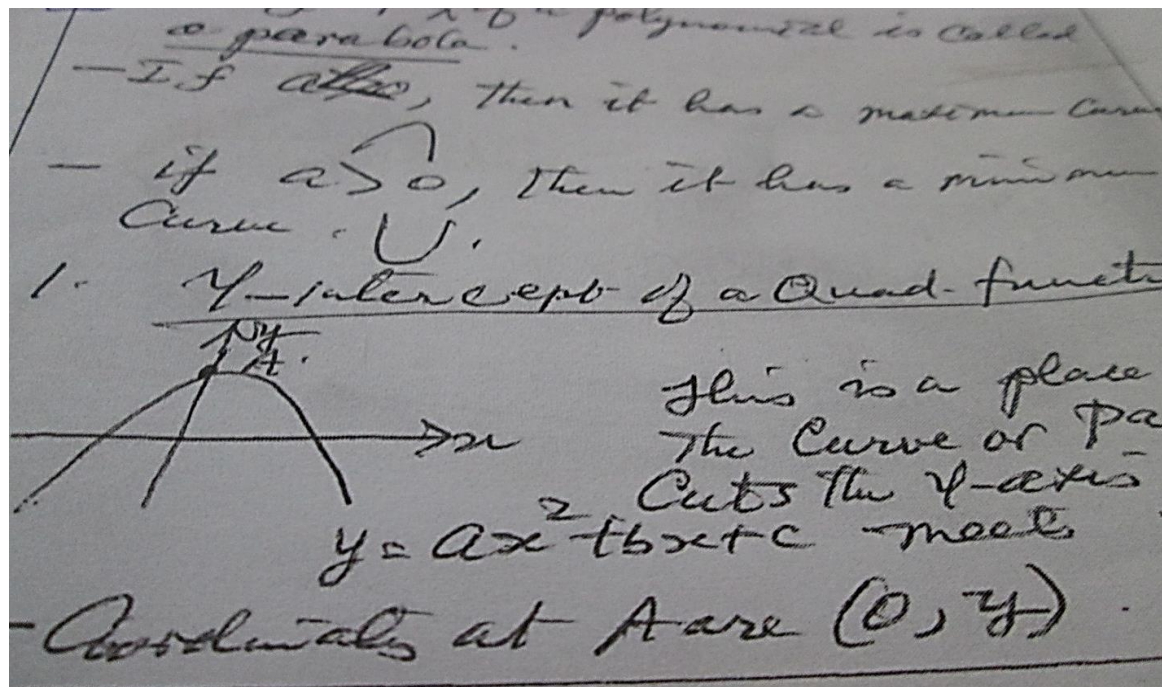 of a polynomial is called
a parabola.
- If a<0, then it has a maximum
- if a>0, then it has a minimum
Curve.
1. Y-intercept of a Quad. functi
y
A.
This is a place
x
The Curve or Pa
Cuts The Y-axis
y = ax²+bx+c meets
- Coordinates at A are (0, y).